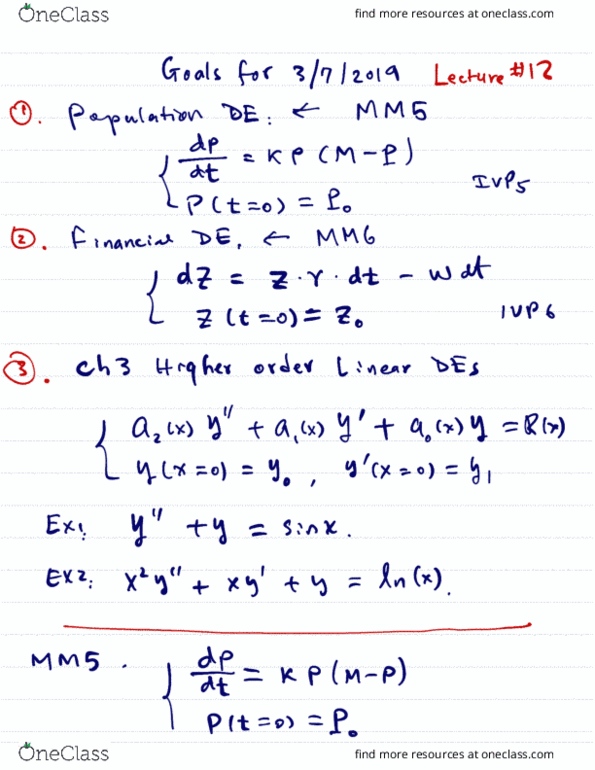 OneClass find more resources at oneclass.com
Goals for 3/7/2019 Lecture #12
①. Population DE: ← MM5
dp/dt = K P (M-P)
P(t=0) = P₀ IVP5
②. Financial DE, ← MM6
dZ = Z·r·dt - W dt
Z(t=0) = Z₀ IVP6
③. Ch3 Higher order Linear DEs
a₂(x) y'' + a₁(x) y' + a₀(x) y = R(x)
y(x=0) = y₀, y'(x=0) = y₁
Ex1: y'' + y = sinx.
EX2: x²y'' + xy' + y = ln(x).
MM5. dp/dt = K P (M-P)
P(t=0) = P₀
OneClass find more resources at oneclass.com